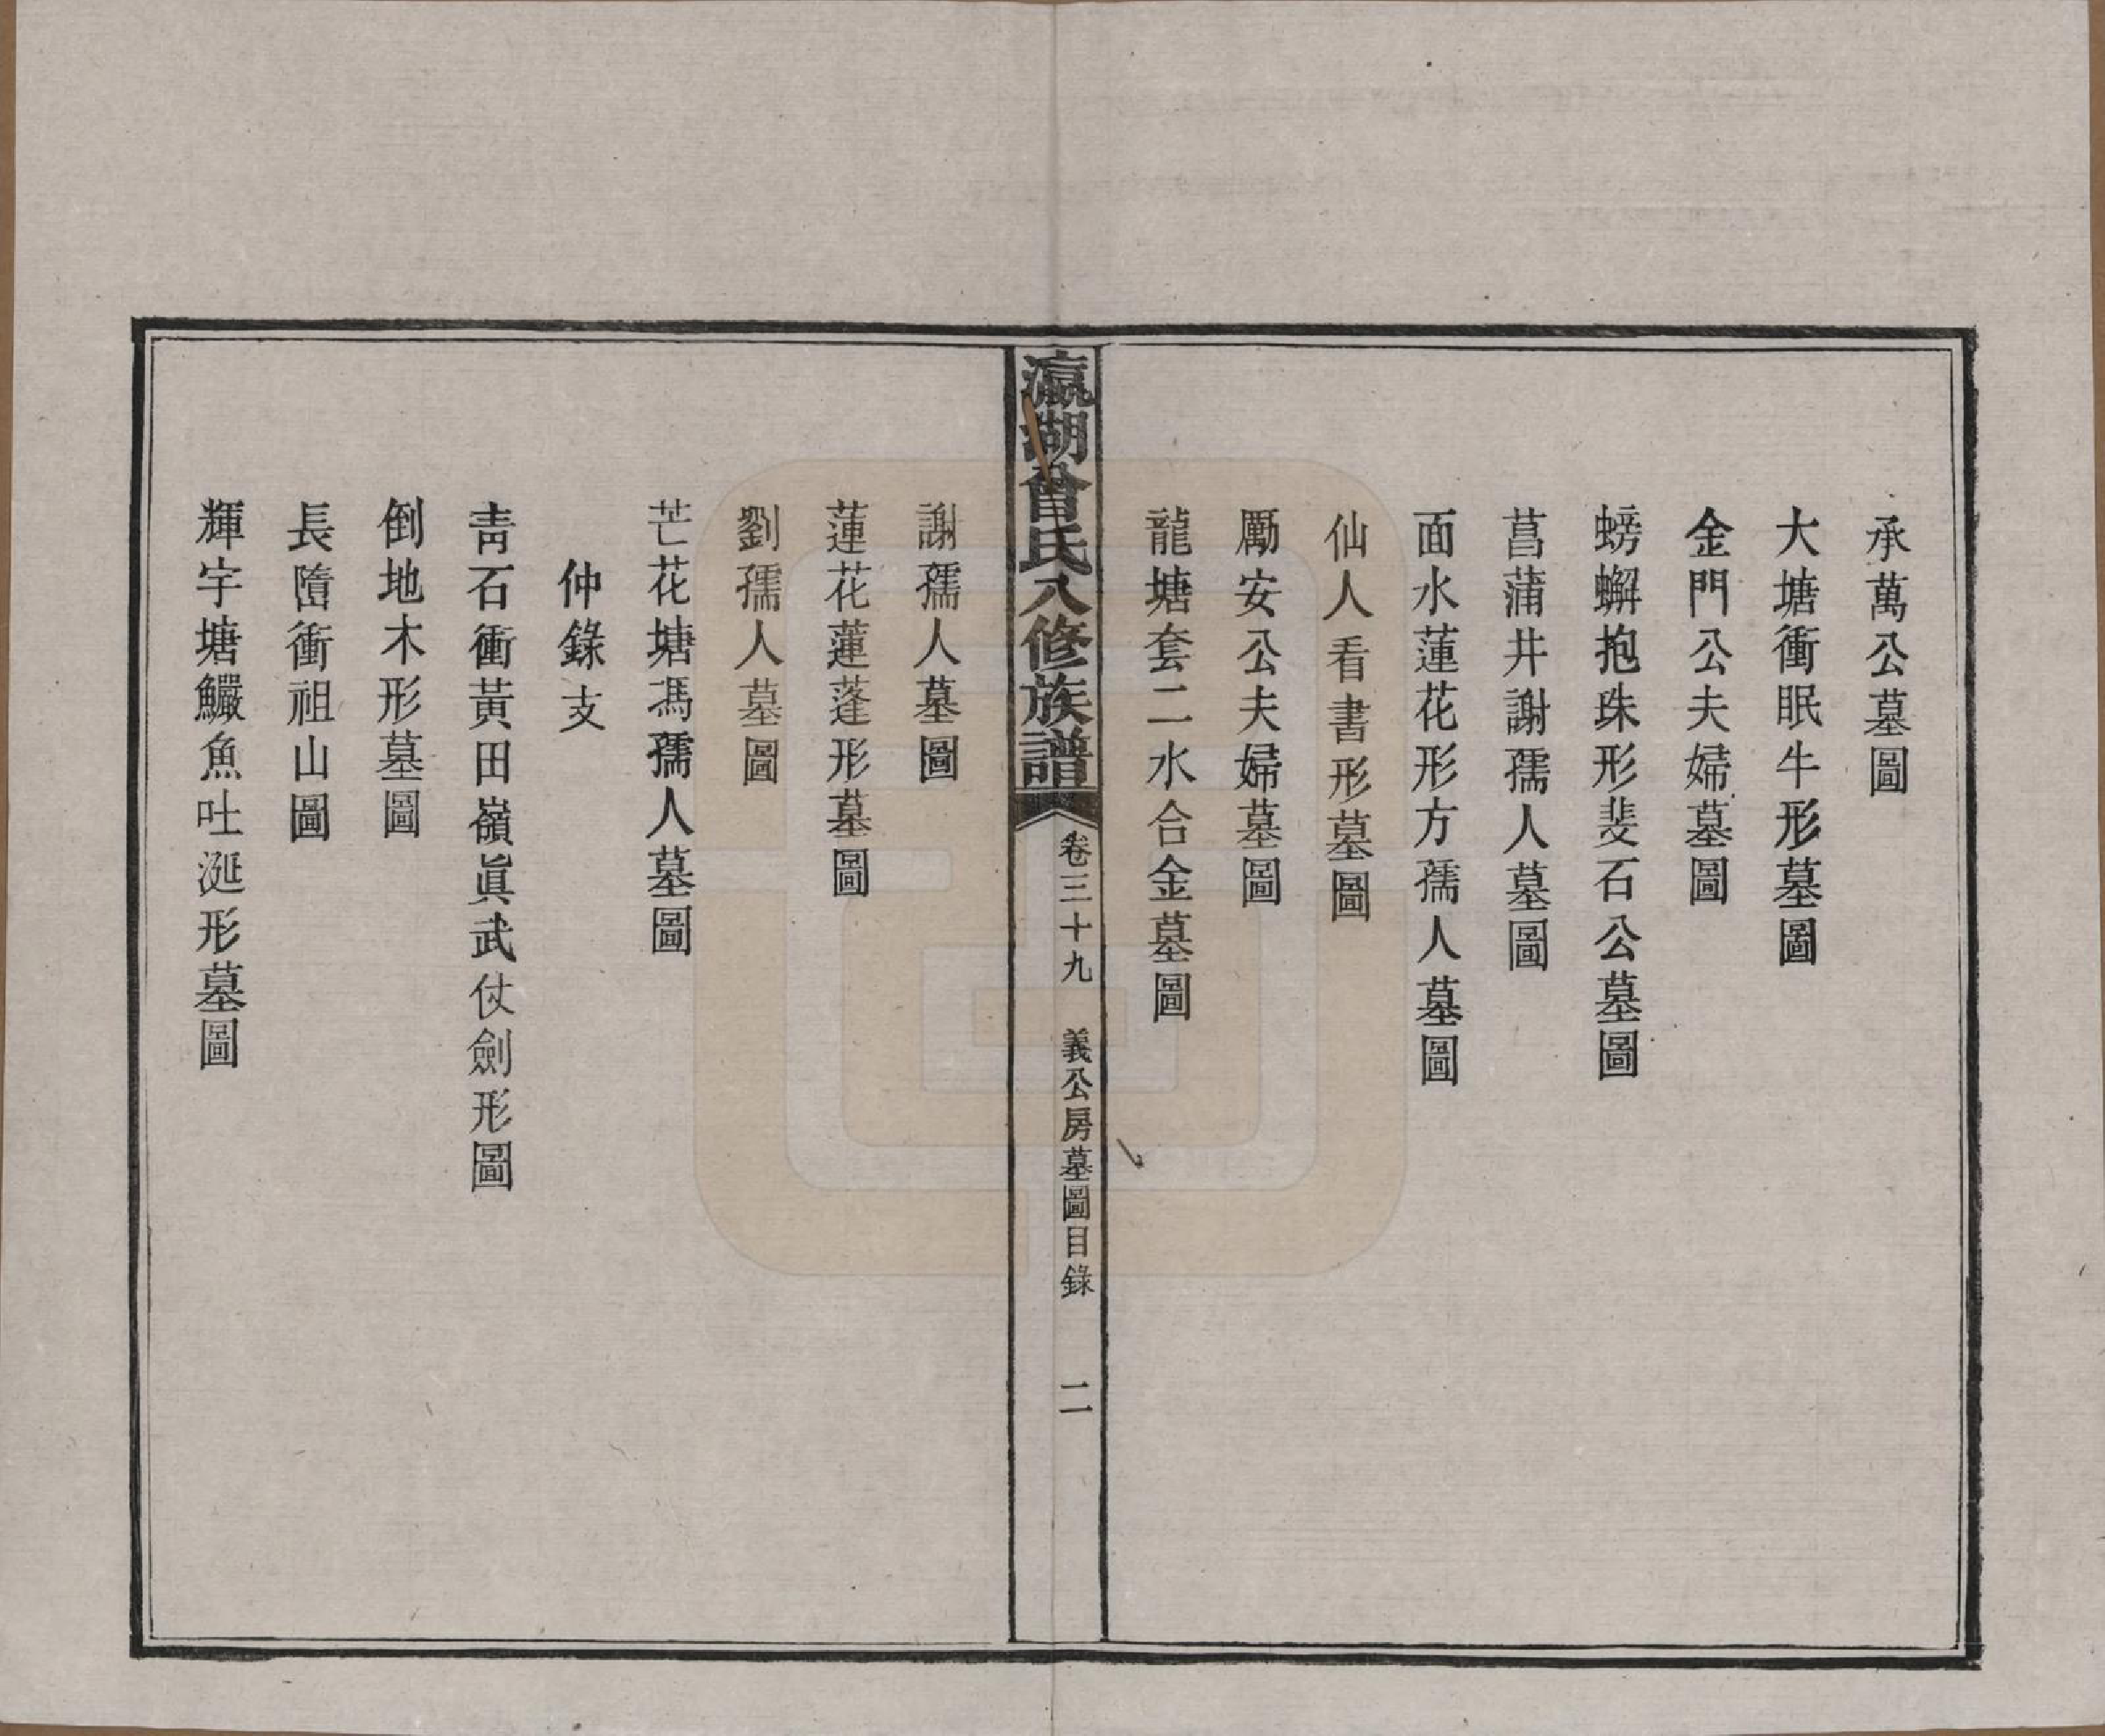 承萬公墓圖
大塘衝眠牛形墓圖
金門公夫婦墓圖
螃蠏抱珠形斐石公墓圖
菖蒲井謝孺人墓圖
面水蓮花形方孺人墓圖
仙人看書形墓圖
勵安公夫婦墓圖
龍塘套二水合金墓圖
瀛湖曾氏八修族譜
卷三十九 義公房墓圖目錄 二
謝孺人墓圖
蓮花蓮蓬形墓圖
劉孺人墓圖
芒花塘馮孺人墓圖
仲錄支
靑石衝黃田嶺眞武仗劍形圖
倒地木形墓圖
長衝祖山圖
輝宇塘魚吐涎形墓圖